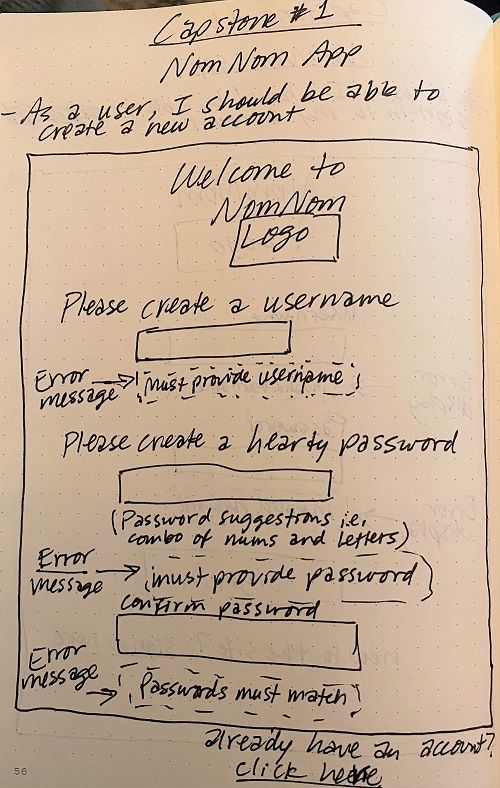 Capstone #1
NomNom App
- As a user, I should be able to
create a new account
Welcome to
NomNom
Logo
Please create a username
Error
message
must provide username
Please create a hearty password
(Password suggestions i.e.
combo of nums and letters)
Error
message
must provide password
confirm password
Error
message
Passwords must match
already have an account?
click here
56